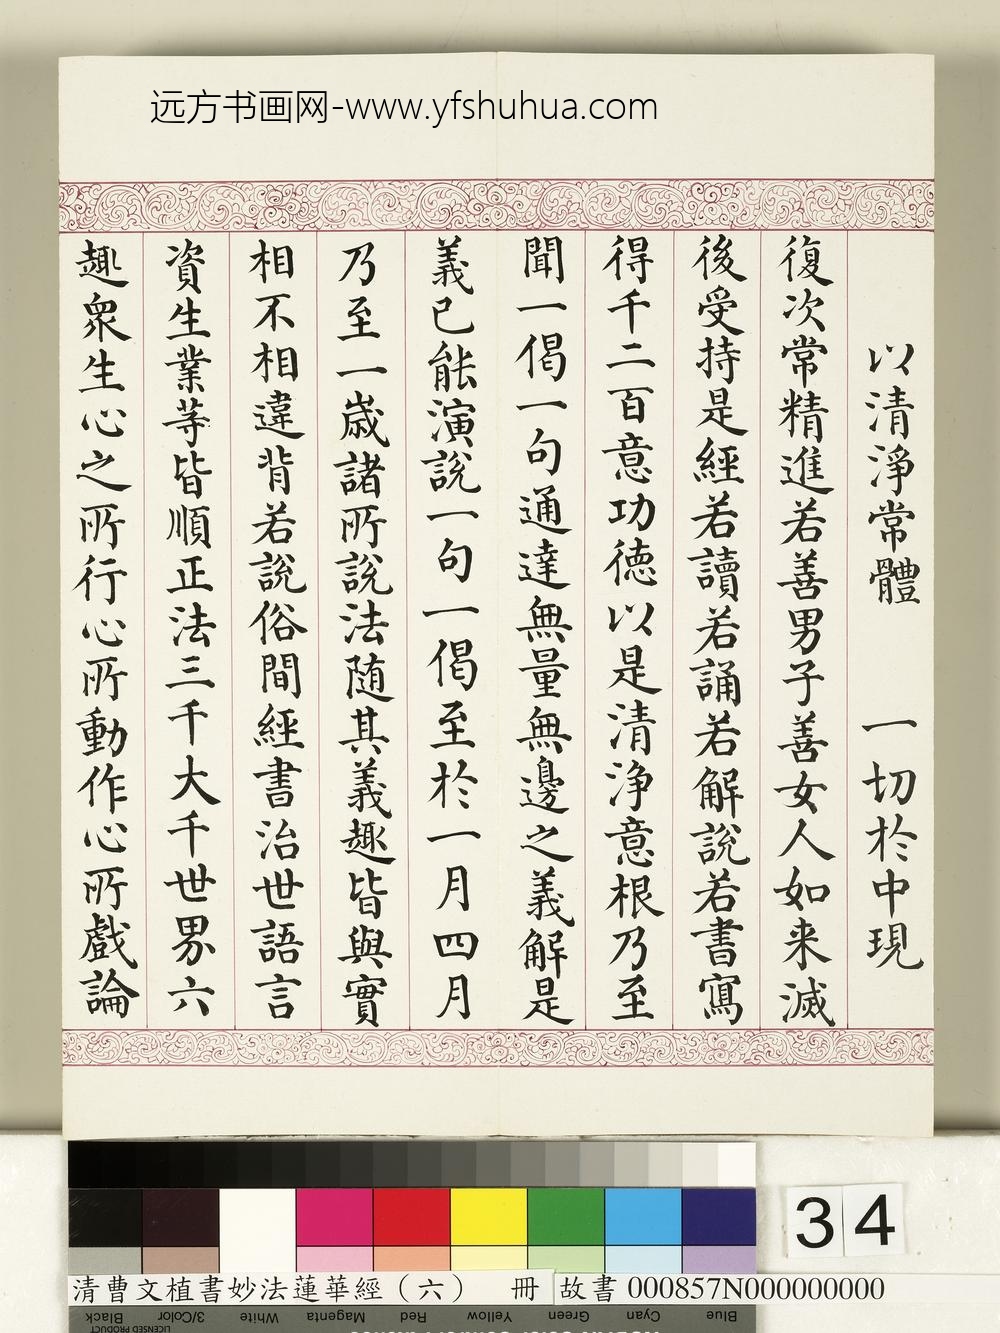 远方书画网-www.yfshuhua.com
以清淨常體　一切於中現
復次常精進若善男子善女人如来滅
後受持是經若讀若誦若解說若書寫
得千二百意功德以是清淨意根乃至
聞一偈一句通達無量無邊之義解是
義已能演說一句一偈至於一月四月
乃至一歲諸所說法隨其義趣皆與實
相不相違背若說俗間經書治世語言
資生業等皆順正法三千大千世界六
趣衆生心之所行心所動作心所戲論
34
清曹文植書妙法蓮華經（六）　冊　故書 000857N000000000
Black 3/Color White Magenta Red Yellow Green Cyan Blue
LICENSED PRODUCT